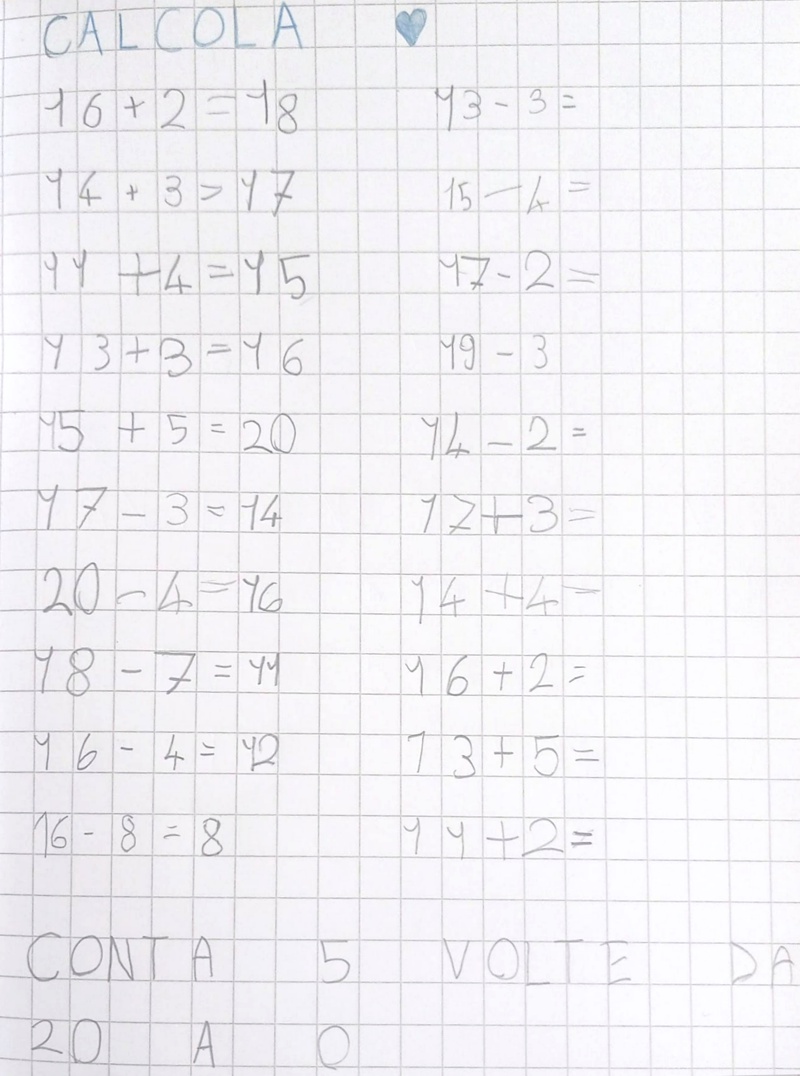 CALCOLA ♥
16 + 2 = 18 13 - 3 =
14 + 3 = 17 15 - 4 =
11 + 4 = 15 17 - 2 =
13 + 3 = 16 19 - 3
15 + 5 = 20 14 - 2 =
17 - 3 = 14 17 + 3 =
20 - 4 = 16 14 + 4 =
18 - 7 = 11 16 + 2 =
16 - 4 = 12 13 + 5 =
16 - 8 = 8 11 + 2 =
CONTA 5 VOLTE DA
20 A 0